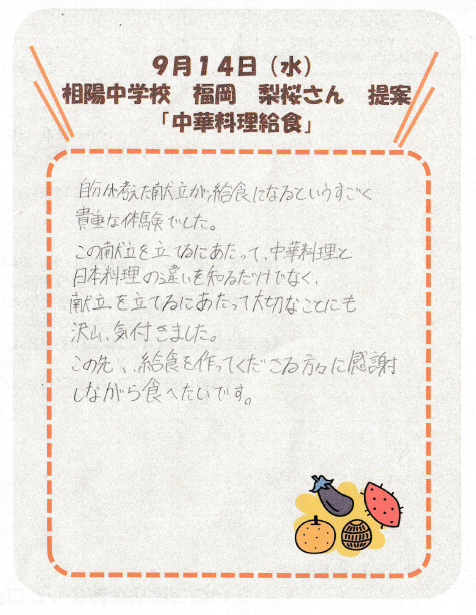 9月14日（水）
相陽中学校　福岡　梨桜さん　提案
「中華料理給食」
自分が考えた献立が、給食になるというすごく
貴重な体験でした。
この献立を立てるにあたって、中華料理と
日本料理の違いを知るだけでなく、
献立を立てるにあたって大切なことにも
沢山、気付きました。
この先、、給食を作ってくださる方々に感謝
しながら食べたいです。